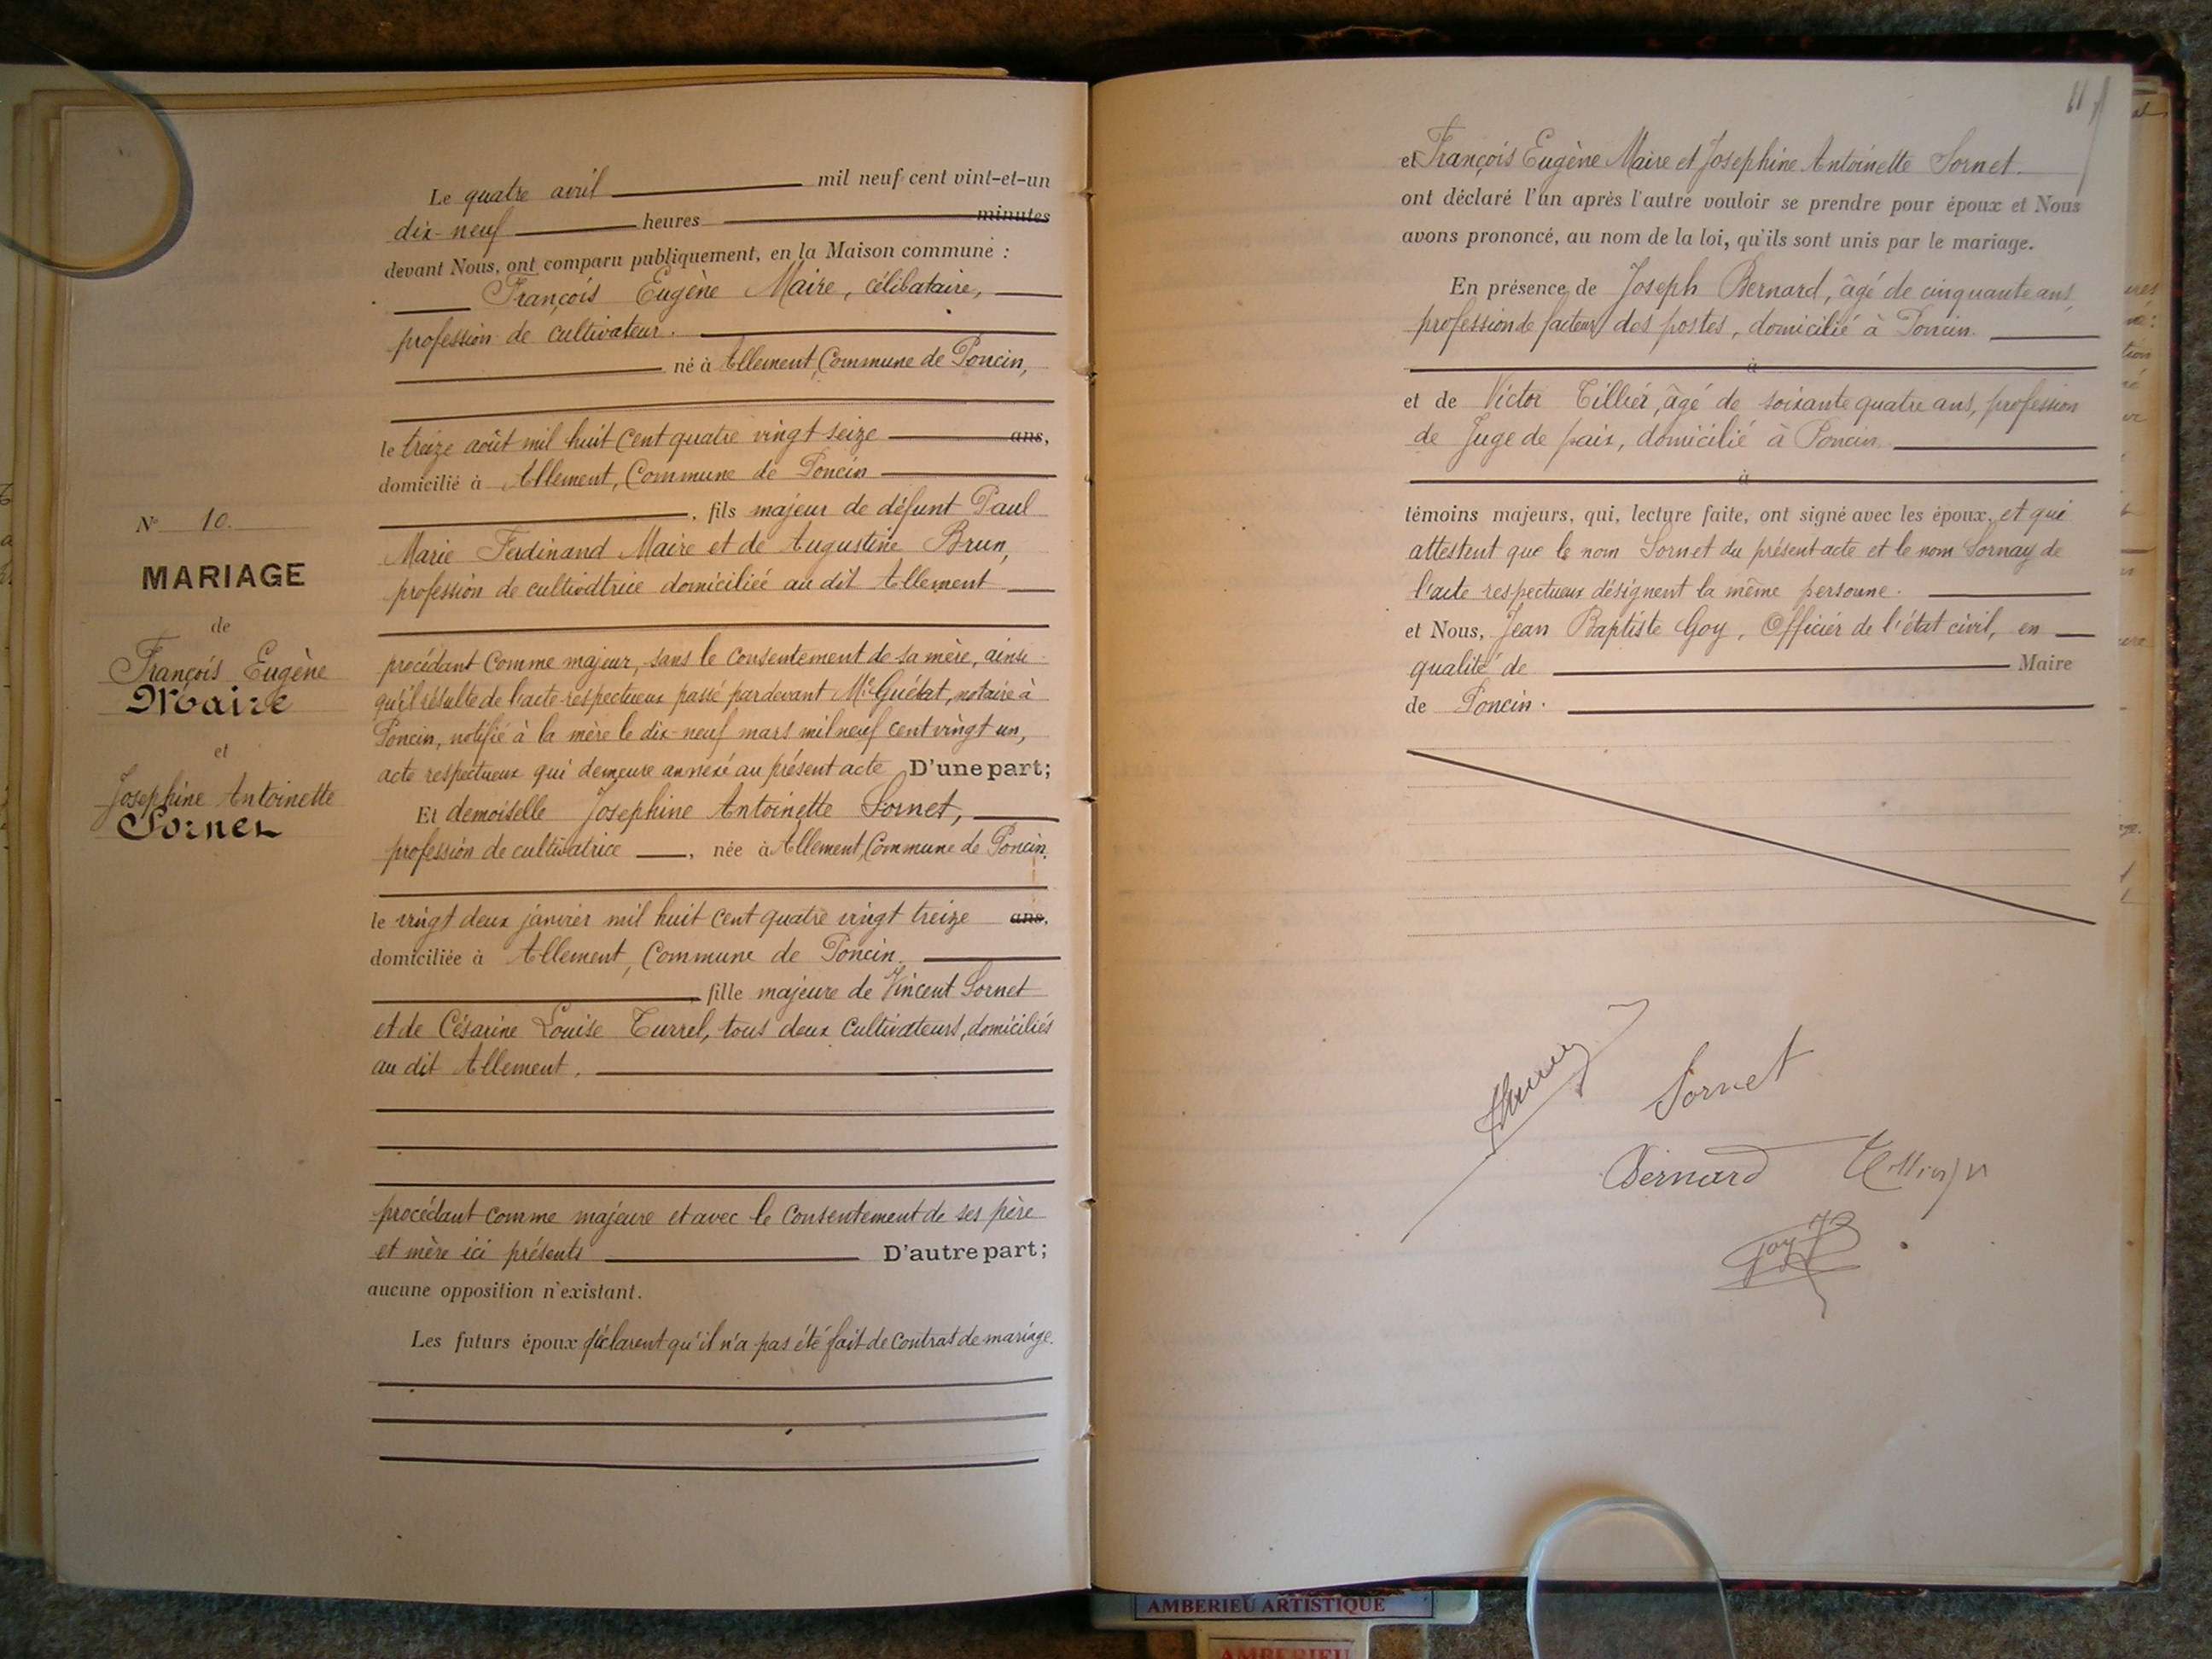 Le quatre avril mil neuf cent vint-et-un
dix-neuf heures minutes
devant Nous, ont comparu publiquement, en la Maison commune :
François Eugène Maire, célibataire,
profession de cultivateur.
né à Allement, Commune de Poncin,
le treize août mil huit cent quatre vingt seize ans,
domicilié à Allement, Commune de Poncin
, fils majeur de défunt Paul
Marie Ferdinand Maire et de Augustine Brun,
profession de cultivatrice domiciliée au dit Allement
procédant comme majeur, sans le consentement de sa mère, ainsi
qu'il résulte de l'acte respectueux passé par devant Me Guétat, notaire à
Poncin, notifié à la mère le dix-neuf mars mil neuf cent vingt un,
acte respectueux qui demeure annexé au présent acte D'une part;
Et demoiselle Josephine Antoinette Sornet,
profession de cultivatrice , née à Allement, Commune de Poncin,
le vingt deux janvier mil huit cent quatre vingt treize ans,
domiciliée à Allement, Commune de Poncin.
, fille majeure de Vincent Sornet
et de Césarine Louise Turrel, tous deux cultivateurs, domiciliés
au dit Allement.
procédant comme majeure et avec le consentement de ses père
et mère ici présents D'autre part;
aucune opposition n'existant.
Les futurs époux déclarent qu'il n'a pas été fait de contrat de mariage.
No 10.
MARIAGE
de
François Eugène
Maire
et
Josephine Antoinette
Sornet
11
et François Eugène Maire et Josephine Antoinette Sornet.
ont déclaré l'un après l'autre vouloir se prendre pour époux et Nous
avons prononcé, au nom de la loi, qu'ils sont unis par le mariage.
En présence de Joseph Bernard, âgé de cinquante ans,
profession de facteur des postes, domicilié à Poncin.
à
et de Victor Tillier, âgé de soixante quatre ans, profession
de Juge de paix, domicilié à Poncin.
à
témoins majeurs, qui, lecture faite, ont signé avec les époux, et qui
attestent que le nom Sornet du présent acte et le nom Sornay de
l'acte respectueux désignent la même personne.
et Nous, Jean Baptiste Goy, Officier de l'état civil, en
qualité de Maire
de Poncin.
Sornet
Bernard
Goy JB
AMBERIEU ARTISTIQUE
AMBERIEU